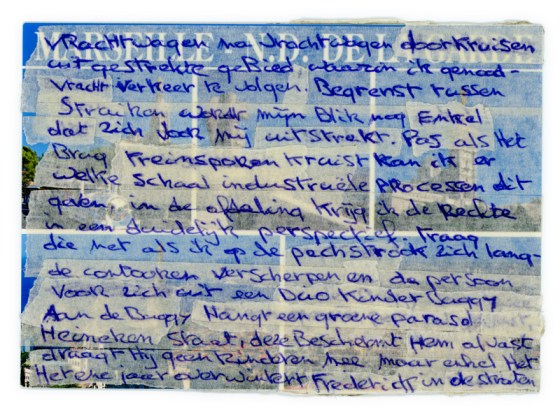 MARSEILLE - N.D. DE LA
Vrachtwagen na vrachtwagen doorkruisen
uitgestrekte gebied waarin ik genood-
vracht verkeer te volgen. Begrenst tussen
Struiken wordt mijn Blik nog Enkel
dat zich voor mij uitstrekt. Pas als Het
Brug kruist kan ik er
welke schaal industriële processen dit
gaven, in de afdaling krijg ik de Rechte
in een duidelijk perspectief. traag
die net als ik op de pechstrook zich lang-
de contouren verscherpen en de persoon
voor zich uit een Duo Kinder Buggy
Aan de Buggy Hangt een groene parasol
Heineken staat, deze Beschermt Hem alvast
draagt Hij geen kinderen mee maar enkel Het
Het ene jaar overwintert Frederich in de straten